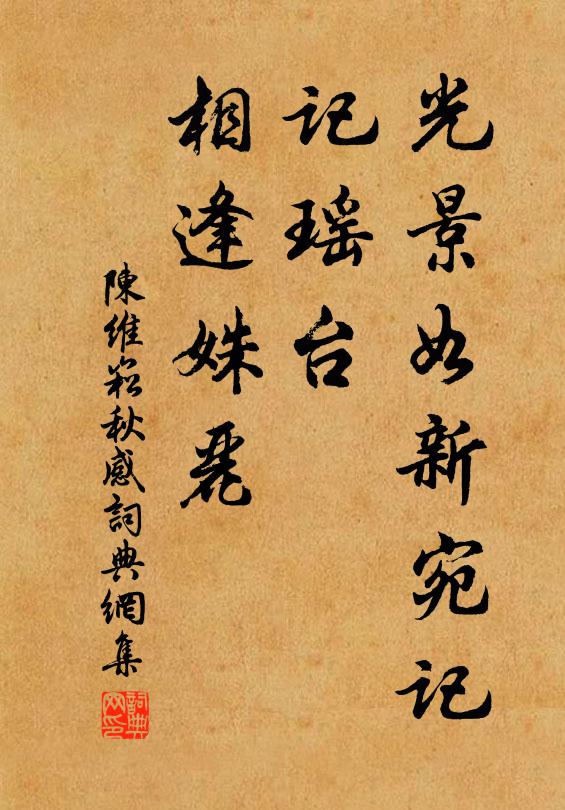 光景如新宛记
记瑶台
相逢姝丽
陳維崧秋感詞典網集
詞典網印